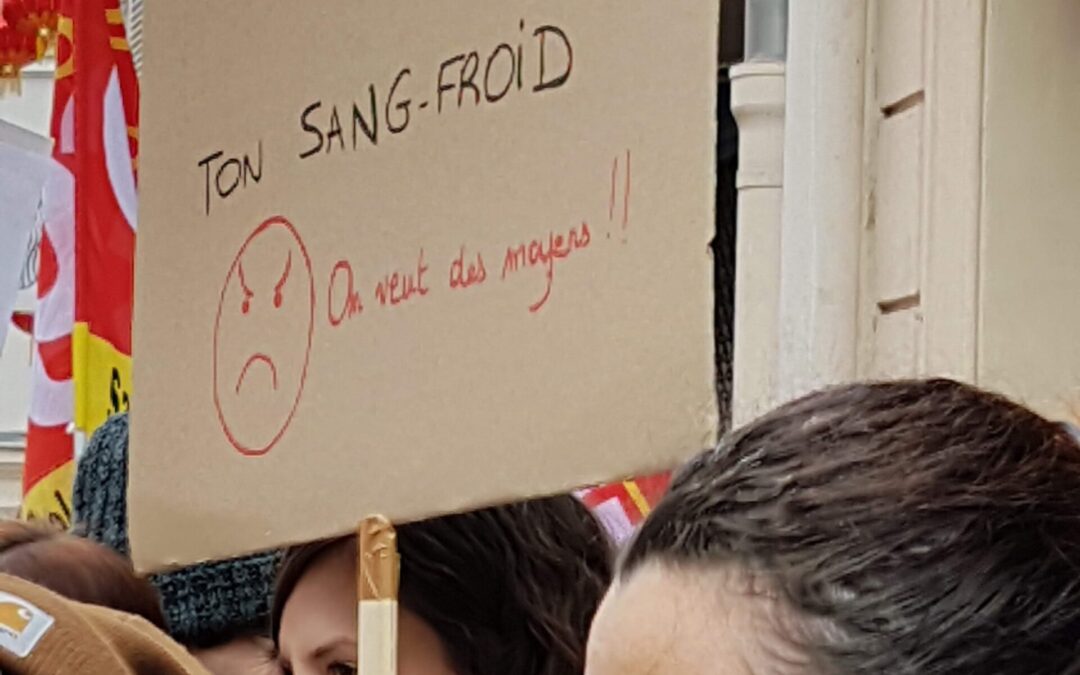 TON SANG-FROiD
On veut des moyens !!